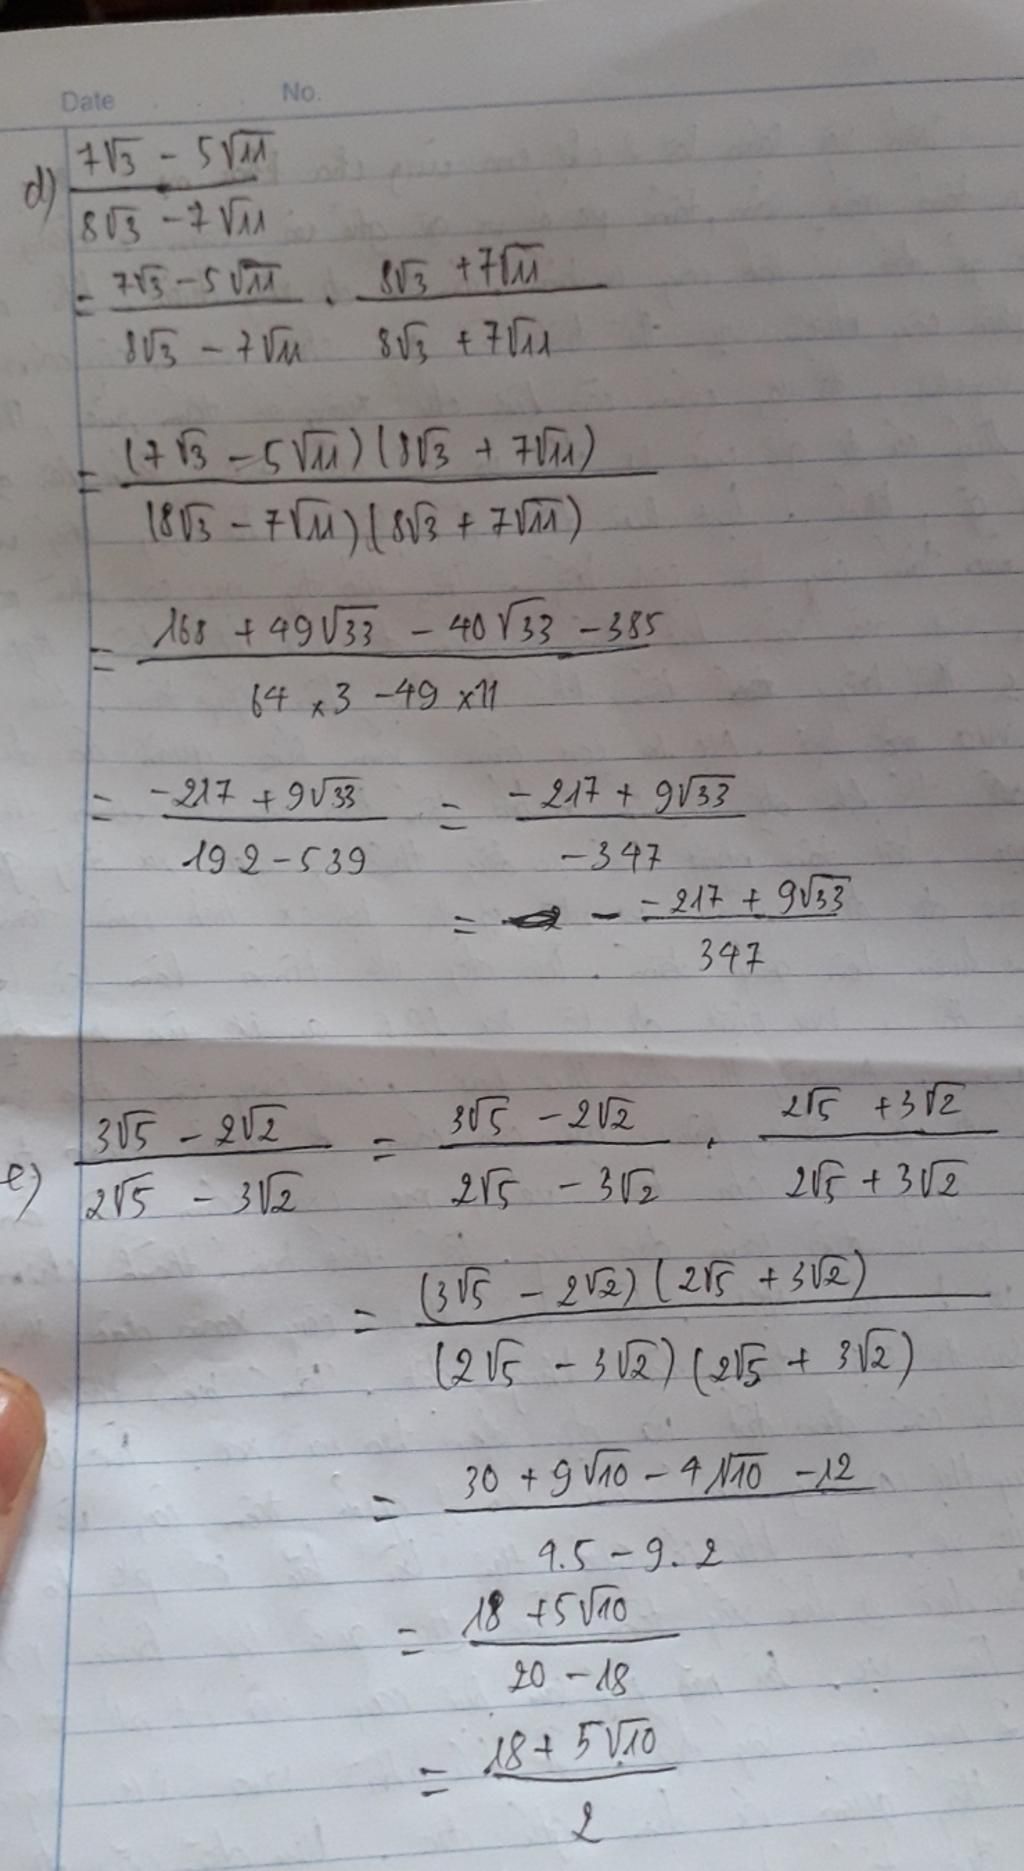 Date No.
d) (7√3 - 5√11)/(8√3 - 7√11)
= (7√3 - 5√11)/(8√3 - 7√11) . (8√3 + 7√11)/(8√3 + 7√11)
= ((7√3 - 5√11)(8√3 + 7√11))/((8√3 - 7√11)(8√3 + 7√11))
= (168 + 49√33 - 40√33 - 385)/(64 x 3 - 49 x 11)
= (-217 + 9√33)/(192 - 539) = (-217 + 9√33)/(-347)
= - (-217 + 9√33)/347
e) (3√5 - 2√2)/(2√5 - 3√2) = (3√5 - 2√2)/(2√5 - 3√2) . (2√5 + 3√2)/(2√5 + 3√2)
= ((3√5 - 2√2)(2√5 + 3√2))/((2√5 - 3√2)(2√5 + 3√2))
= (30 + 9√10 - 4√10 - 12)/(4.5 - 9.2)
= (18 + 5√10)/(20 - 18)
= (18 + 5√10)/2